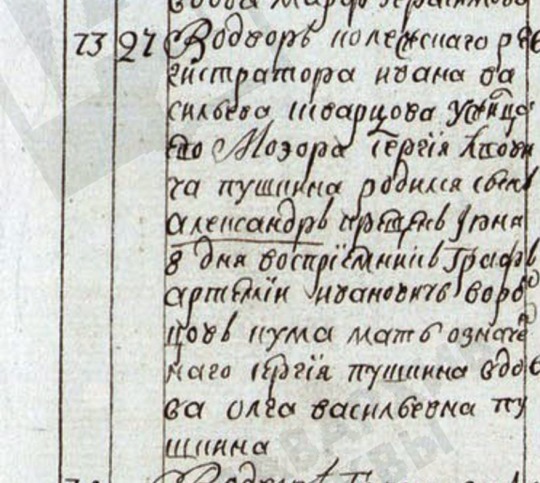 вдова марфа герасимова
73 27 Во дворѣ колежскаго рег
истратора ивана ва
сильева шварцова у жилца
ево Моэора сергія лвови
ча пушкина родился сынъ
александръ крещенъ Іюня
8 дня воспріемникъ Графъ
артемій ивановичь ворон
цовъ кума мать означен
наго сергія пушкина вдо
ва олга васильевна пу
шкина
Во дворѣ